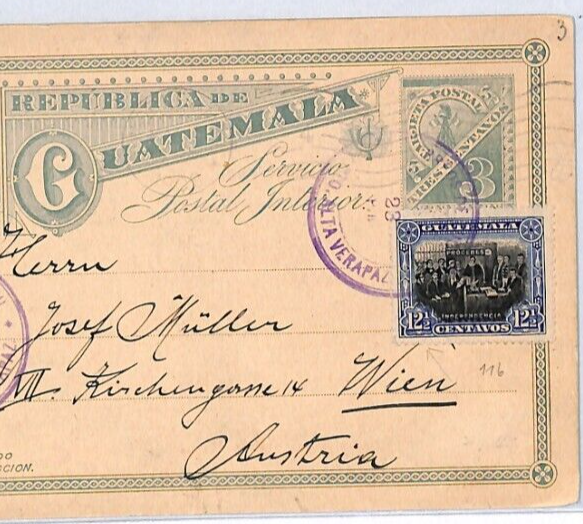 3
REPÚBLICA DE
GUATEMALA
Servicio
Postal Interior.
TARJETA POSTAL
TRES CENTAVOS
3
23
ALTA VERAPAZ
GUATEMALA
PROCERES
INDEPENDENCIA
12½ 12½
CENTAVOS
Herrn
Josef Müller
VII. Kirchengasse 14 Wien
Austria
116
CION.